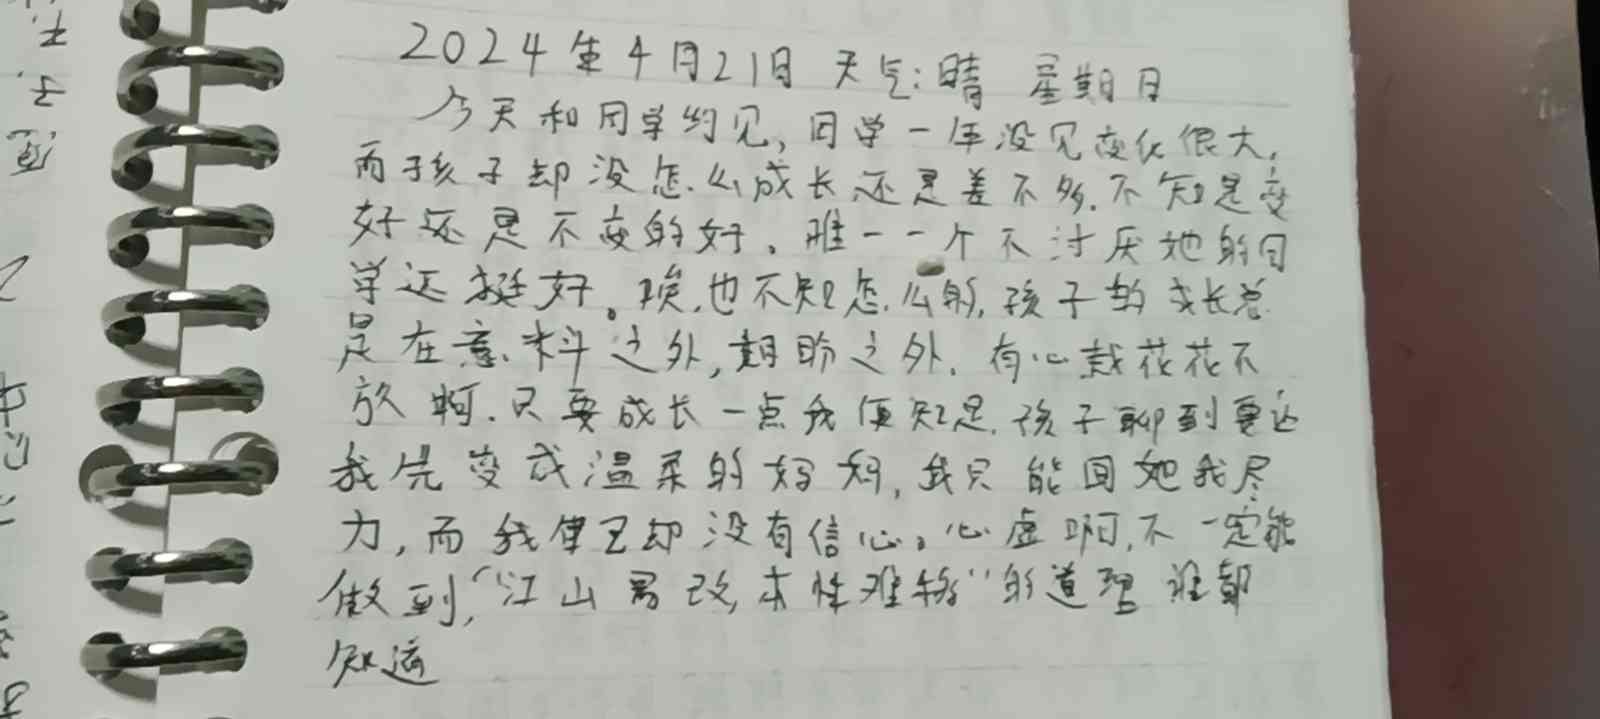 2024年4月21日 天气:晴 星期日
今天和同学约见,同学一年没见变化很大,
而孩子却没怎么成长还是差不多.不知是变
好还是不变的好。唯一一个不讨厌她的同
学还挺好。唉,也不知怎么的,孩子的成长总
是在意料之外,期盼之外.有心栽花花不
放啊.只要成长一点我便知足.孩子聊到要让
我先变成温柔的妈妈,我只能回她我尽
力,而我自己却没有信心。心虚啊,不一定能
做到,“江山易改,本性难移”的道理谁都
知道